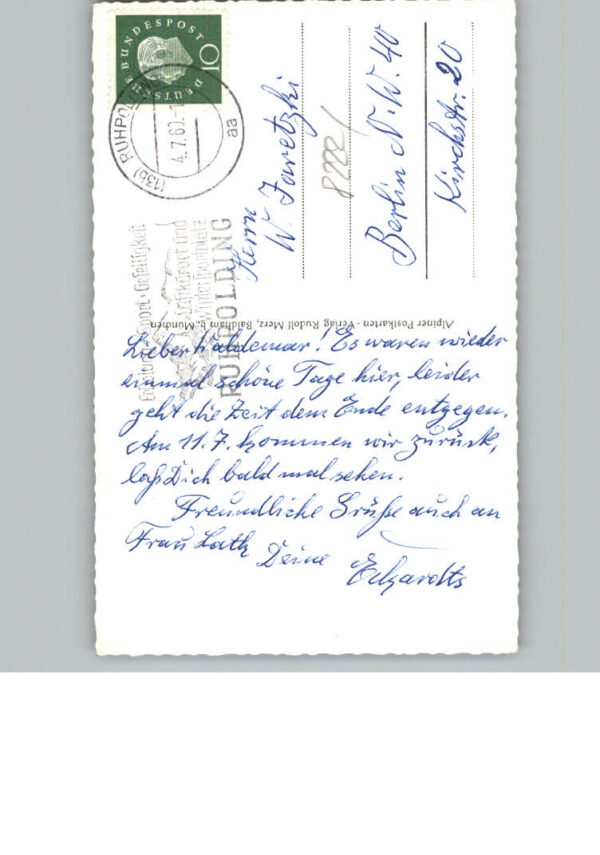 DEUTSCHE BUNDESPOST
10
(13b) RUHPOLDING
4.7.60-1
aa
Erholung · Sport · Geselligkeit
Luftkurort und
Wintersportplatz
RUHPOLDING
Herrn
W. Jaretzki
Berlin N.W. 40
Kirchstr. 20
Alpiner Postkarten - Verlag Rudolf Merz, Baldham b. München
Lieber Waldemar! Es waren wieder
einmal schöne Tage hier, leider
geht die Zeit dem Ende entgegen.
Am 11.7. kommen wir zurück,
laß Dich bald mal sehen.
Freundliche Grüße auch an
Frau Lath
Deine Eckardts